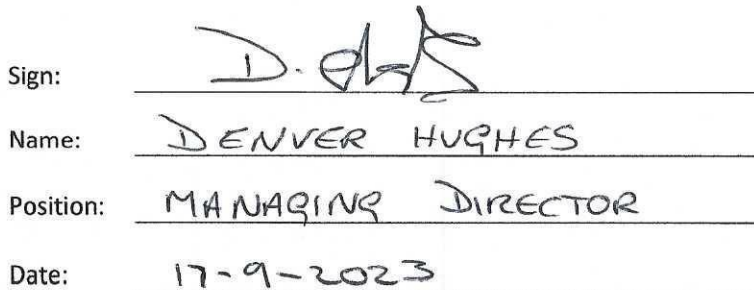 Sign: D.
Name: DENVER HUGHES
Position: MANAGING DIRECTOR
Date: 17-9-2023